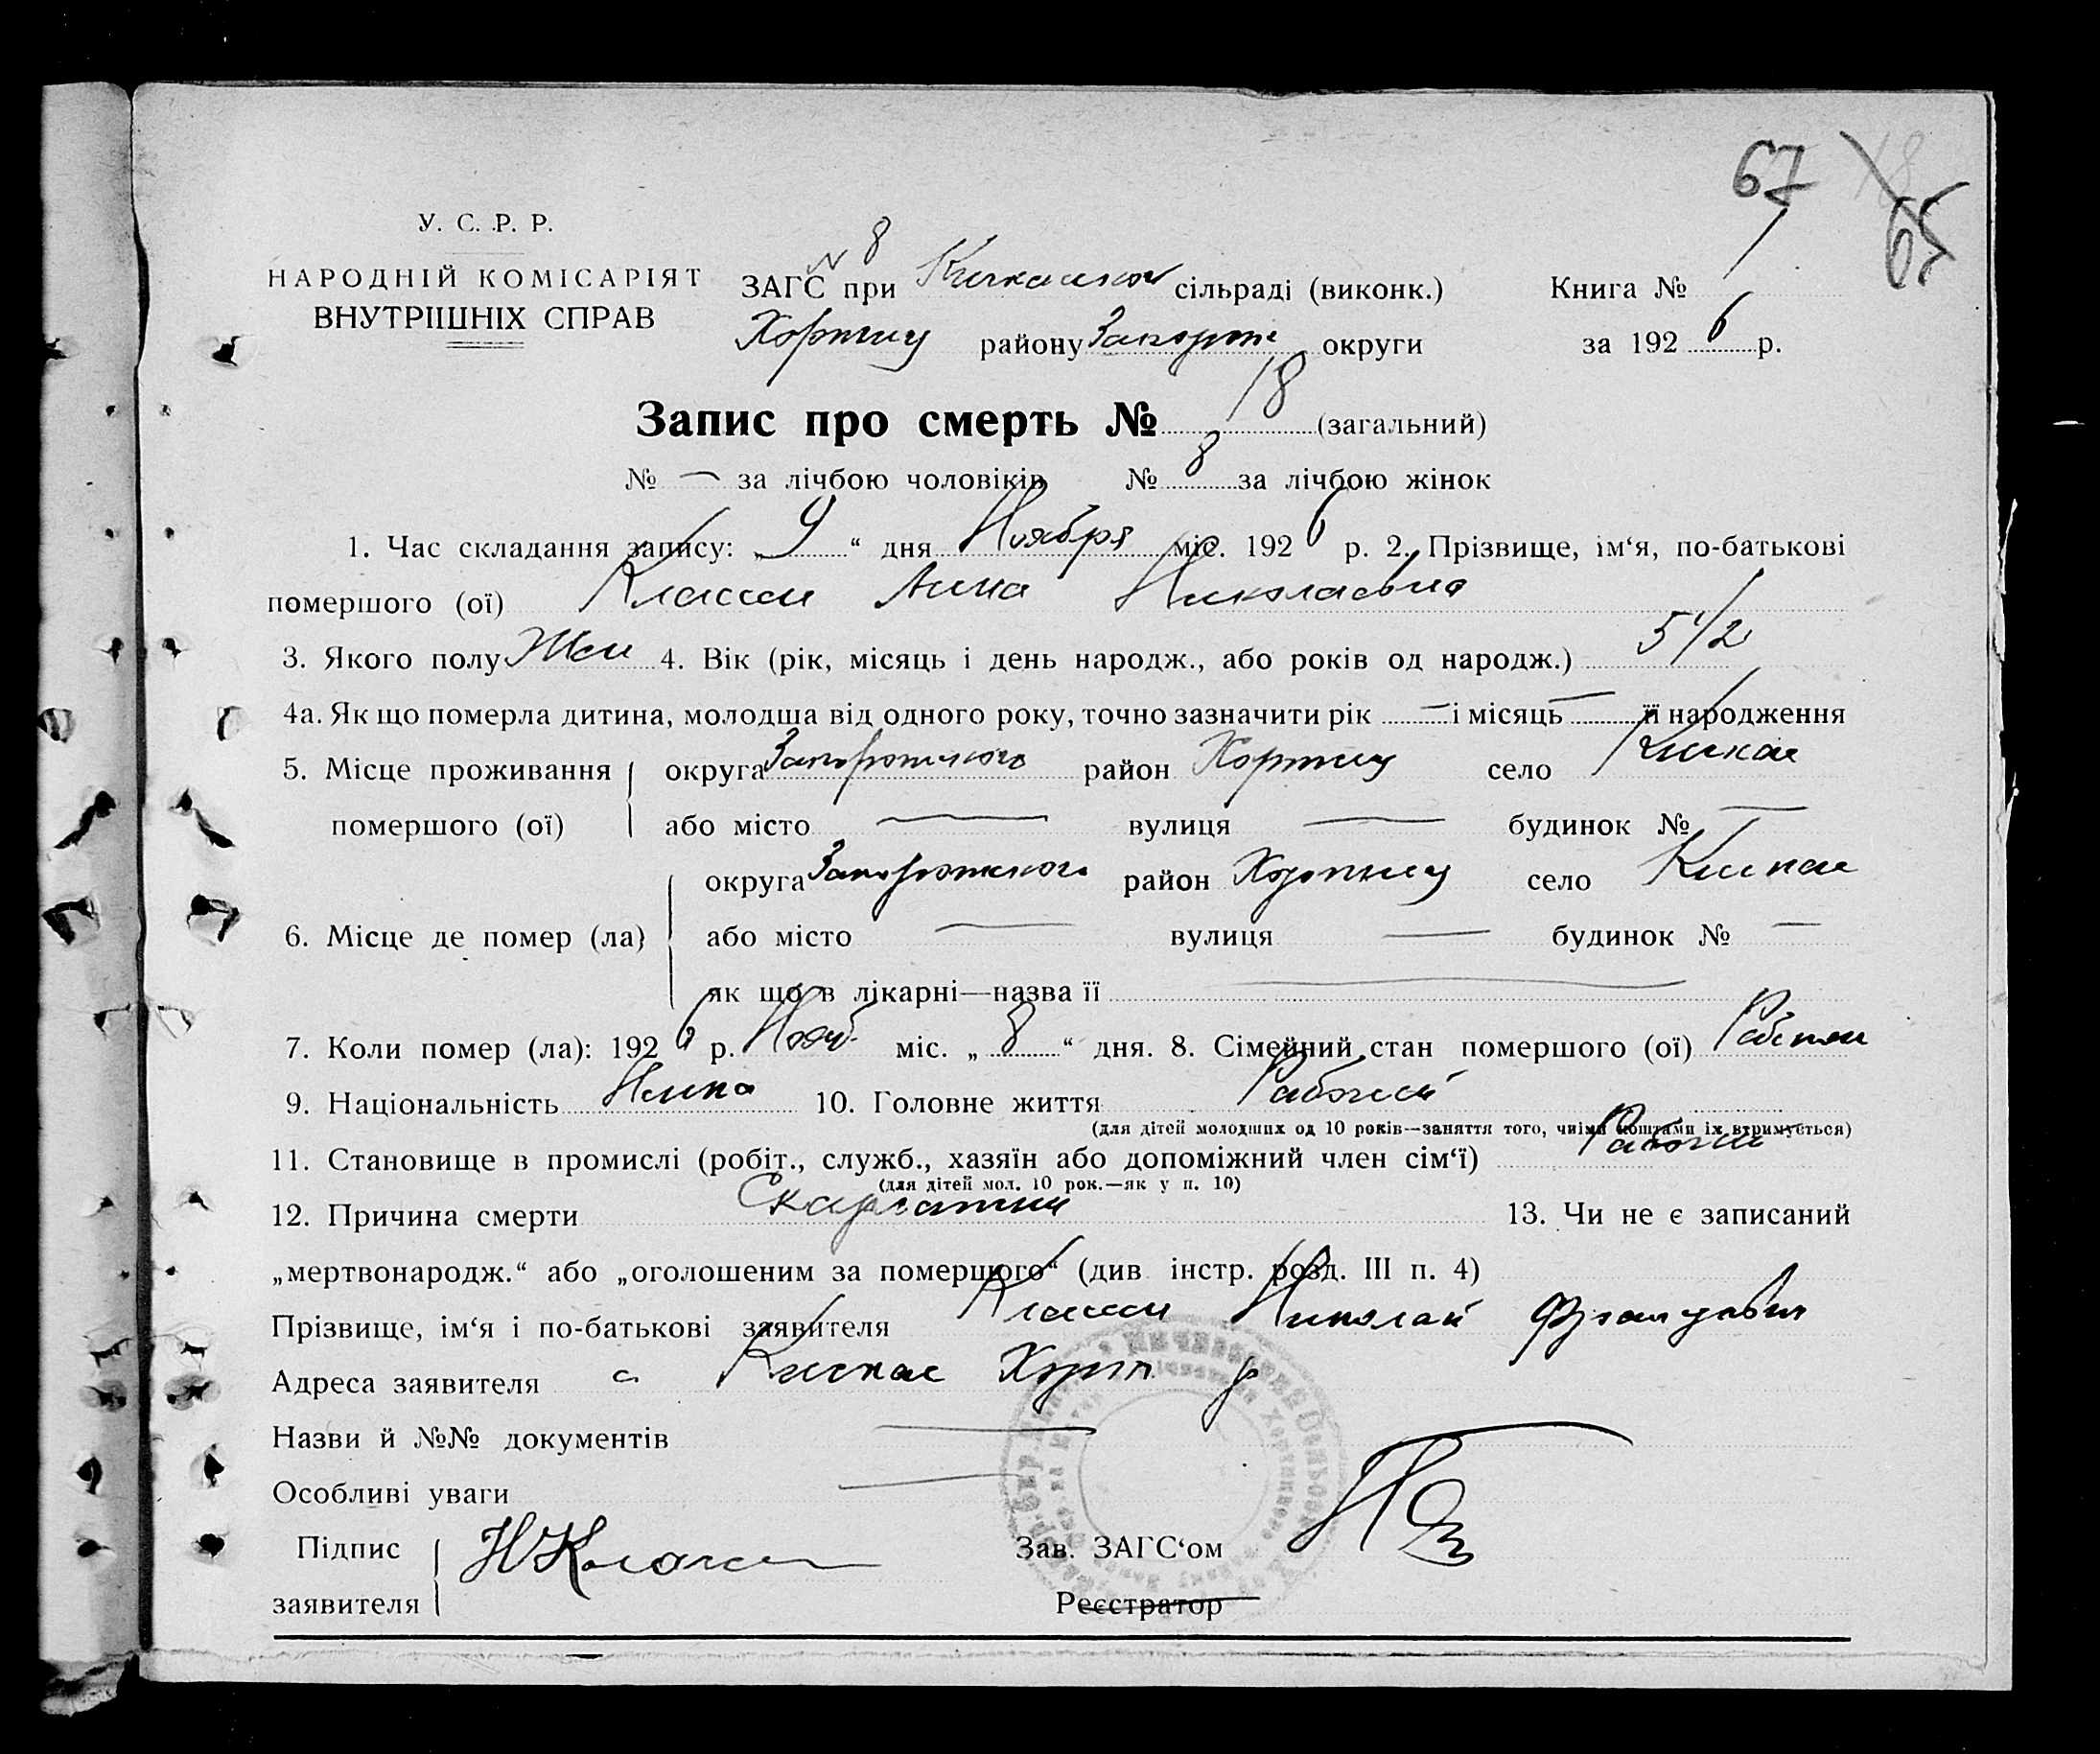 67 18 65
У. С. Р. Р.
НАРОДНІЙ КОМІСАРІЯТ
ВНУТРІШНІХ СПРАВ
N 8
ЗАГС при Кичкаском сільраді (виконк.) Книга № 1
Хортиц району Запорож округи за 1926 р.
Запис про смерть № 18 (загальний)
№ — за лічбою чоловіків № 8 за лічбою жінок
1. Час складання запису: „9“ дня Ноября міс. 1926 р. 2. Прізвище, ім‘я, по-батькові
помершого (ої) Классен Анна Николаевна
3. Якого полу Жен 4. Вік (рік, місяць і день народж., або років од народж.) 5 1/2
4а. Як що померла дитина, молодша від одного року, точно зазначити рік — і місяць — її народження
5. Місце проживання округа Запорожского район Хортиц село Кичкас
помершого (ої) або місто — вулиця — будинок № —
округа Запорожского район Хортиц село Кичкас
6. Місце де помер (ла) або місто — вулиця — будинок № —
як що в лікарні—назва її —
7. Коли помер (ла): 1926 р. Нояб міс. „8“ дня. 8. Сімейний стан помершого (ої)
9. Національність Немка 10. Головне життя Рабочий
(для дітей молодших од 10 років—заняття того, чиїми коштами їх втримується)
11. Становище в промислі (робіт., служб., хазяїн або допоміжний член сім‘ї) Рабочий
(для дітей мол. 10 рок.—як у п. 10)
12. Причина смерти Скарлатина 13. Чи не є записаний
„мертвонародж.“ або „оголошеним за помершого“ (див інстр. розд. III п. 4)
Прізвище, ім‘я і по-батькові заявителя Классен Николай
Адреса заявителя с Кичкас Хорт р
Назви й №№ документів —
Особливі уваги —
Підпис Н Классен Зав. ЗАГС‘ом
заявителя Реєстратор